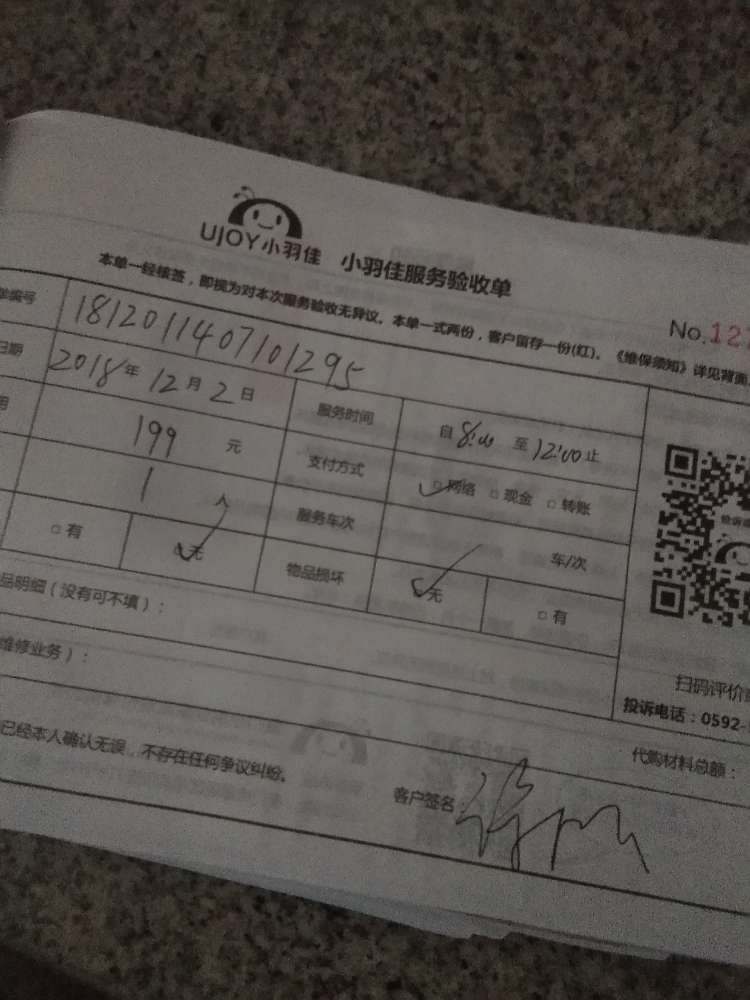 UJOY小羽佳 小羽佳服务验收单
本单一经核签，即视为对本次服务验收无异议。本单一式两份，客户留存一份(红)。《维保须知》详见背面
No.12
单编号 1812011407101295
日期 2018年12月2日 服务时间 自8:00至12:00止
用 199元 支付方式 □网络 □现金 □转账
1人 服务车次 车/次
□有 无 物品损坏 无 □有
品明细（没有可不填）：
维修业务）：
扫码评价
投诉电话：0592-
代购材料总额：
已经本人确认无误，不存在任何争议纠纷。
客户签名